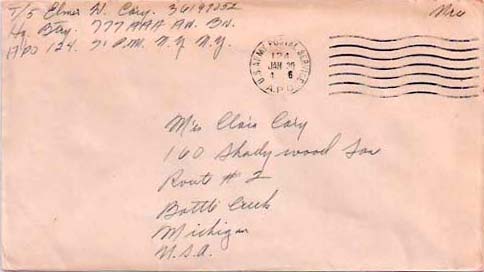 T/5 Elmer W. Cory. 36149252
Hq. Btry. 777 AAA AW. Bn.
APO 124. % P.M. N.Y. N.Y.
U.S. ARMY POSTAL SERVICE
124
JAN 30
4 6
A.P.O.
Mrs Clois Cory
160 Shadywood
Route # 2
Battle Creek
Michigan
U.S.A.